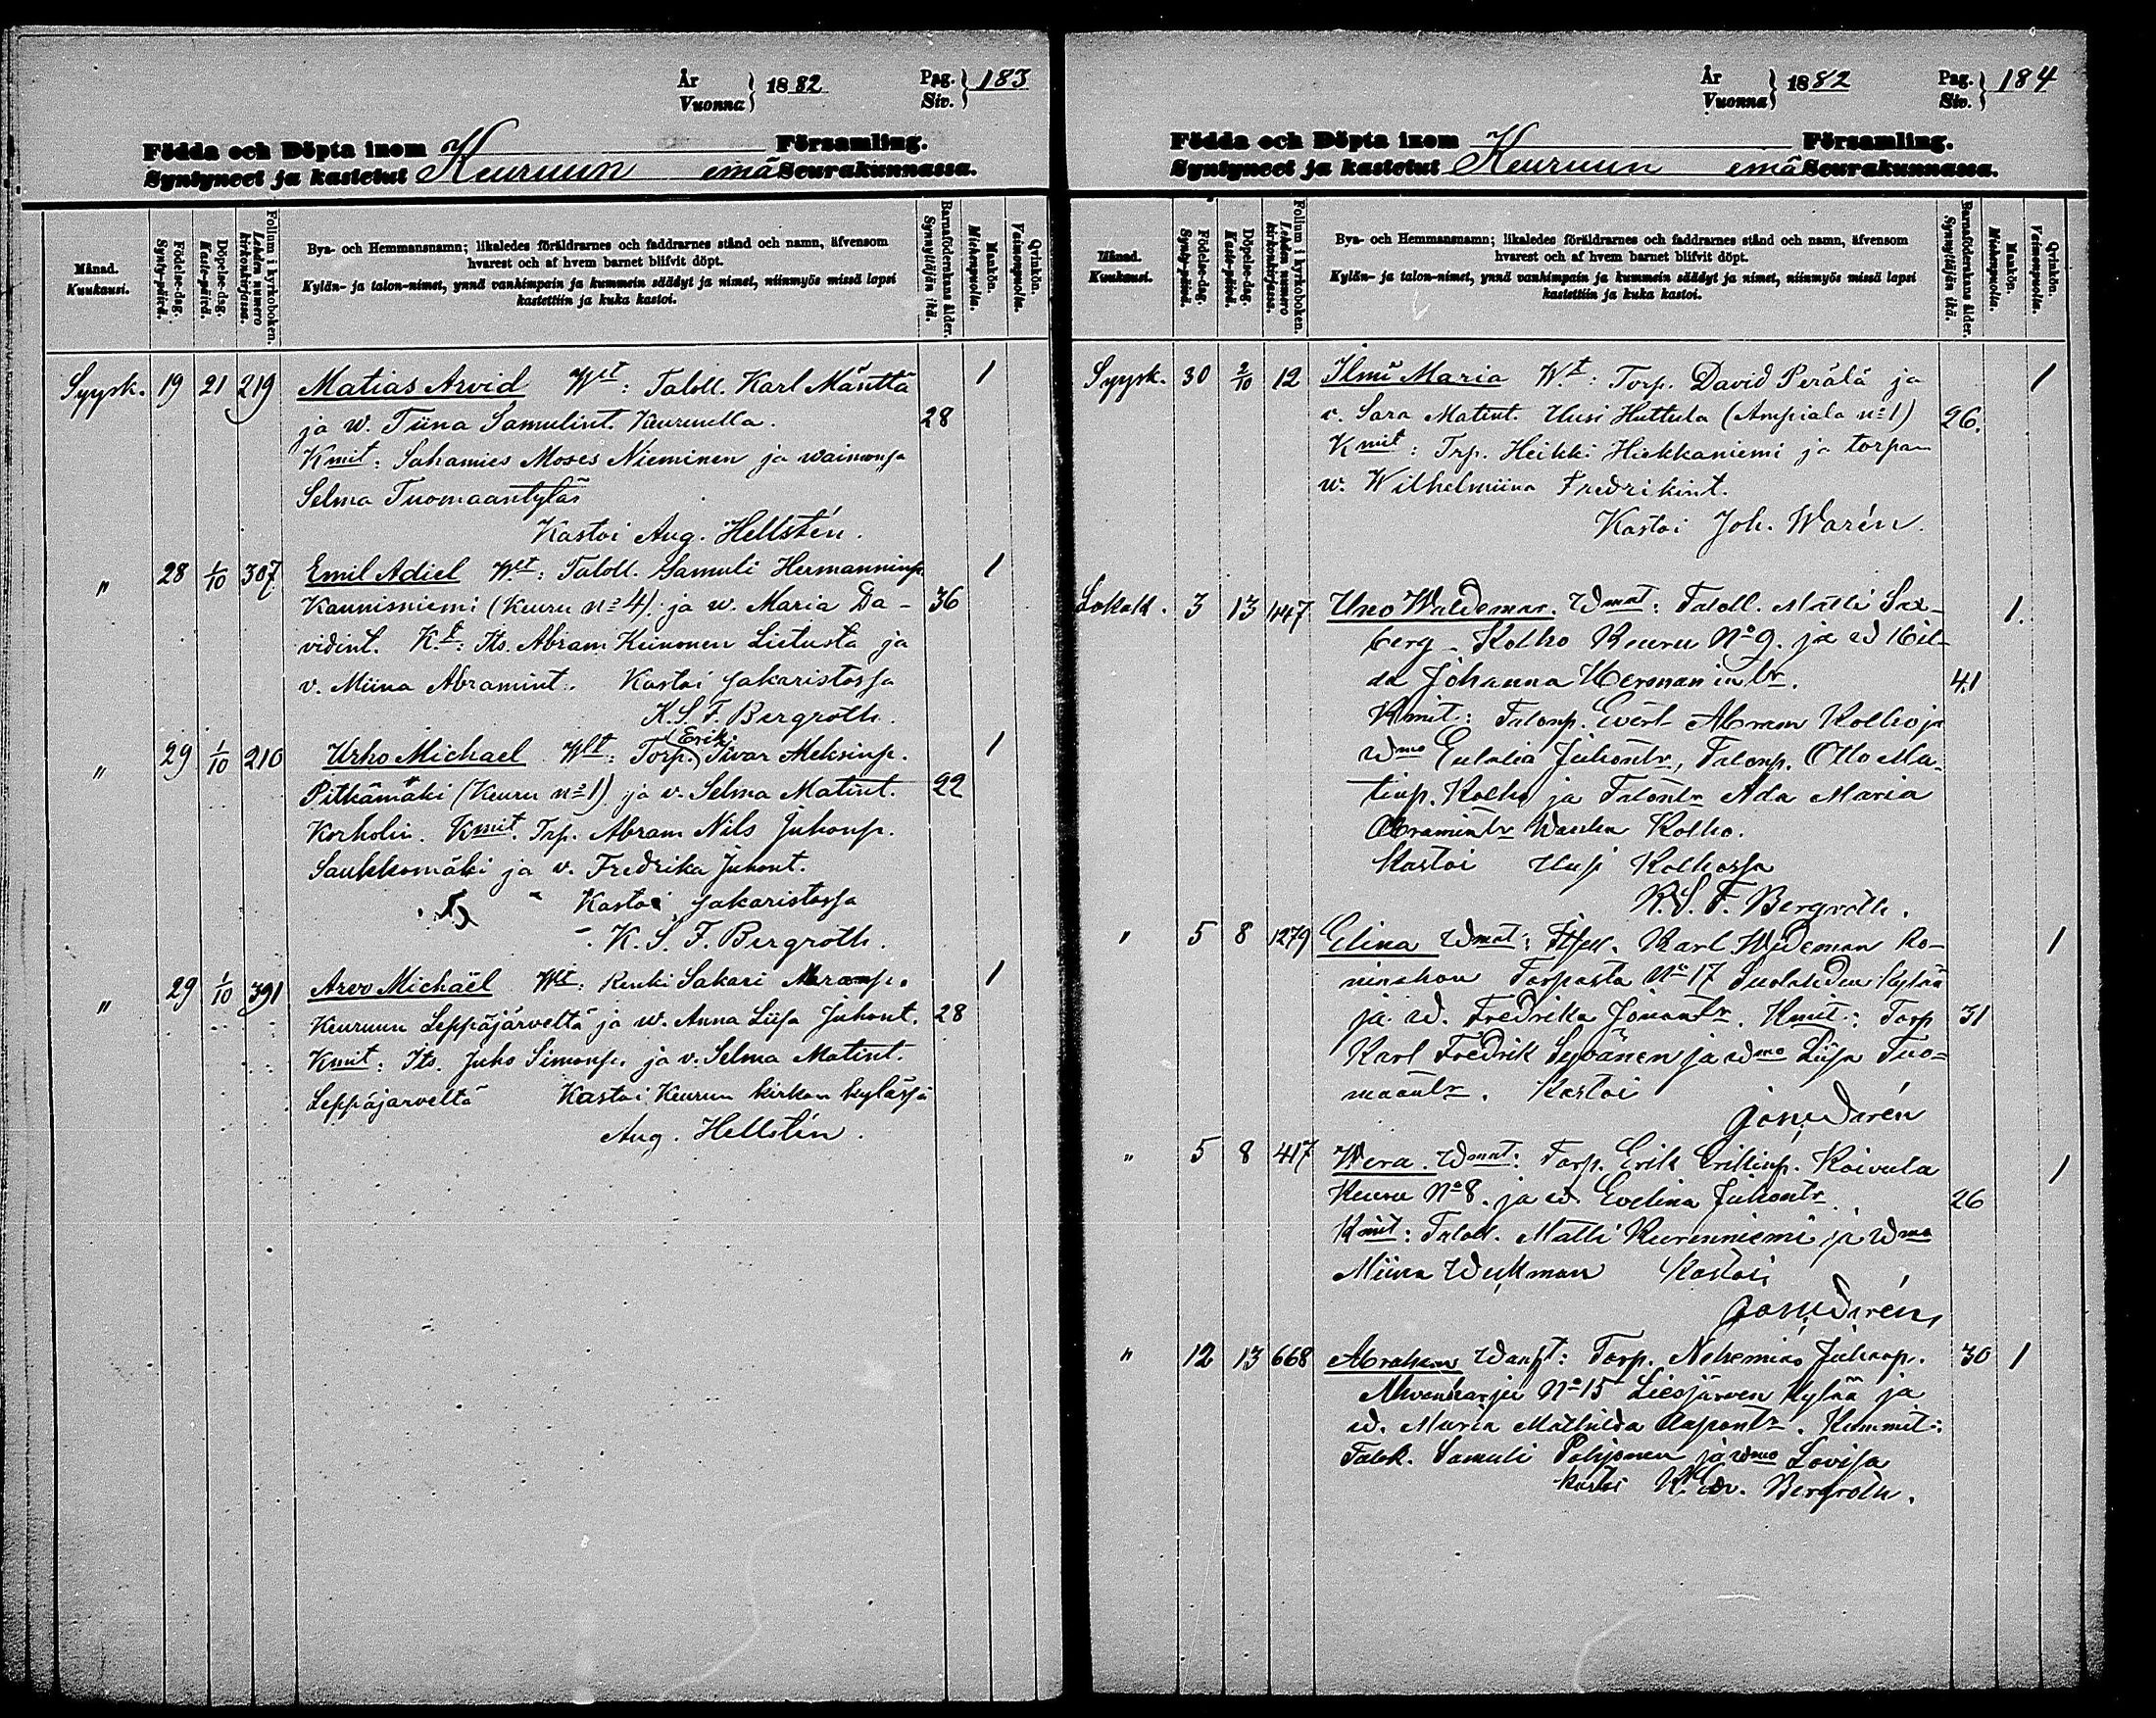 År
Vuonna } 1882 Pag.
Siv. } 183
Födda och Döpta inom Församling.
Syntyneet ja kastetut Keuruun emä Seurakunnassa.
Månad.
Kuukausi.
Födelse-dag.
Synty-päivä.
Döpelse-dag.
Kaste-päivä.
Folium i kyrkoboken.
Lehden numero kirkonkirjassa.
Bya- och Hemmansnamn; likaledes föräldrarnes och faddrarnes stånd och namn, äfvensom
hvarest och af hvem barnet blifvit döpt.
Kylän- ja talon-nimet, ynnä vanhimpain ja kummein säädyt ja nimet, niinmyös missä lapsi
kastettiin ja kuka kastoi.
Barnaföderskans ålder.
Synnyttäjän ikä.
Mankön.
Miehenpuolia.
Qvinkön.
Vaimonpuolia.
Syysk. 19 21 219 Matias Arvid Wt: Taloll. Karl Mänttä 1
ja w. Tiina Samulint. Keuruulla. 28
Kmit: Sahamies Moses Nieminen ja waimonsa
Selma Tuomaantytär
Kastoi Aug. Hellstén.
" 28 1/10 307 Emil Adiel Wt: Taloll. Samuli Hermanninp. 1
Kaunisniemi (Keuru n:o 4) ja w. Maria Da- 36
vidint. Kt: Its. Abram Keinonen Liitusta ja
v. Miina Abramint. Kastoi sakaristossa
K. S. F. Bergroth.
" 29 1/10 210 Urho Michael Wt: Torp. Erik Iivar Meksinp. 1
Pitkämäki (Keuru n:o 1) ja v. Selma Matint. 22
Korholin. Kmit. Trp. Abram Nils Juhonp.
Saukkomäki ja v. Fredrika Juhont.
Kastoi sakaristossa
K. S. F. Bergroth.
" 29 1/10 391 Arvo Michaël Wt: Renki Sakari Abramp. 1
Keuruun Leppäjärveltä ja w. Anna Liisa Juhont. 28
Kmit: Its. Juho Simonp. ja v. Selma Matint.
Leppäjärveltä Kastoi Keuruun kirkon kylässä
Aug. Hellstén.
År
Vuonna } 1882 Pag.
Siv. } 184
Födda och Döpta inom Församling.
Syntyneet ja kastetut Keuruun emä Seurakunnassa.
Månad.
Kuukausi.
Födelse-dag.
Synty-päivä.
Döpelse-dag.
Kaste-päivä.
Folium i kyrkoboken.
Lehden numero kirkonkirjassa.
Bya- och Hemmansnamn; likaledes föräldrarnes och faddrarnes stånd och namn, äfvensom
hvarest och af hvem barnet blifvit döpt.
Kylän- ja talon-nimet, ynnä vanhimpain ja kummein säädyt ja nimet, niinmyös missä lapsi
kastettiin ja kuka kastoi.
Barnaföderskans ålder.
Synnyttäjän ikä.
Mankön.
Miehenpuolia.
Qvinkön.
Vaimonpuolia.
Syysk. 30 2/10 12 Ilmi Maria Wt: Torp. David Perälä ja 1
v. Sara Matint. Uusi Huttula (Ampiala n:o 1) 26.
Kmit: Trp. Heikki Hiekkaniemi ja torpan
w. Wilhelmiina Fredrikint.
Kastoi Joh. Warén.
Lokak. 3 13 147 Uno Waldemar. Wmat: Taloll. Matti Sax- 1.
berg Kolho Keuru No 9. ja w Hil-
da Johanna Hermanintr. 41
Kmit: Talonp. Evert Abram Kolho ja
Wmo Eulalia Juhontr., Talonp. Otto Ma-
tinp. Kolho ja Talontr Ada Maria
Abramintr Wanha Kolho.
Kastoi Uusi Kolhossa
K. S. F. Bergroth.
" 5 8 1279 Elina Wmat: Karl Wideman Ro- 1
ninahon Torpasta No 17 Suolahden kylää
ja w. Fredrika Jonantr. Kmit: Torp 31
Karl Fredrik Syvänen ja wmo Liisa Tuo-
maantr. Kastoi
Joh. Warén
" 5 8 417 Wera. Wmat: Torp. Erik Erikinp. Koivula 1
Keuru No 8. ja w. Evelina Juhontr. 26
Kmit: Taloll. Matti Kurenniemi ja Wmo
Miina Wickman Kastoi,
Joh. Warén,
" 12 13 668 Abraham Wanht: Torp. Nehemias Juhonp. 30 1
Ahvenharju No 15 Liesjärven kylää ja
w. Maria Mathilda Aapontr. Kummit:
Talok. Samuli Pohjonen ja Wmo Lovisa
kastoi K. Edv. Bergroth.